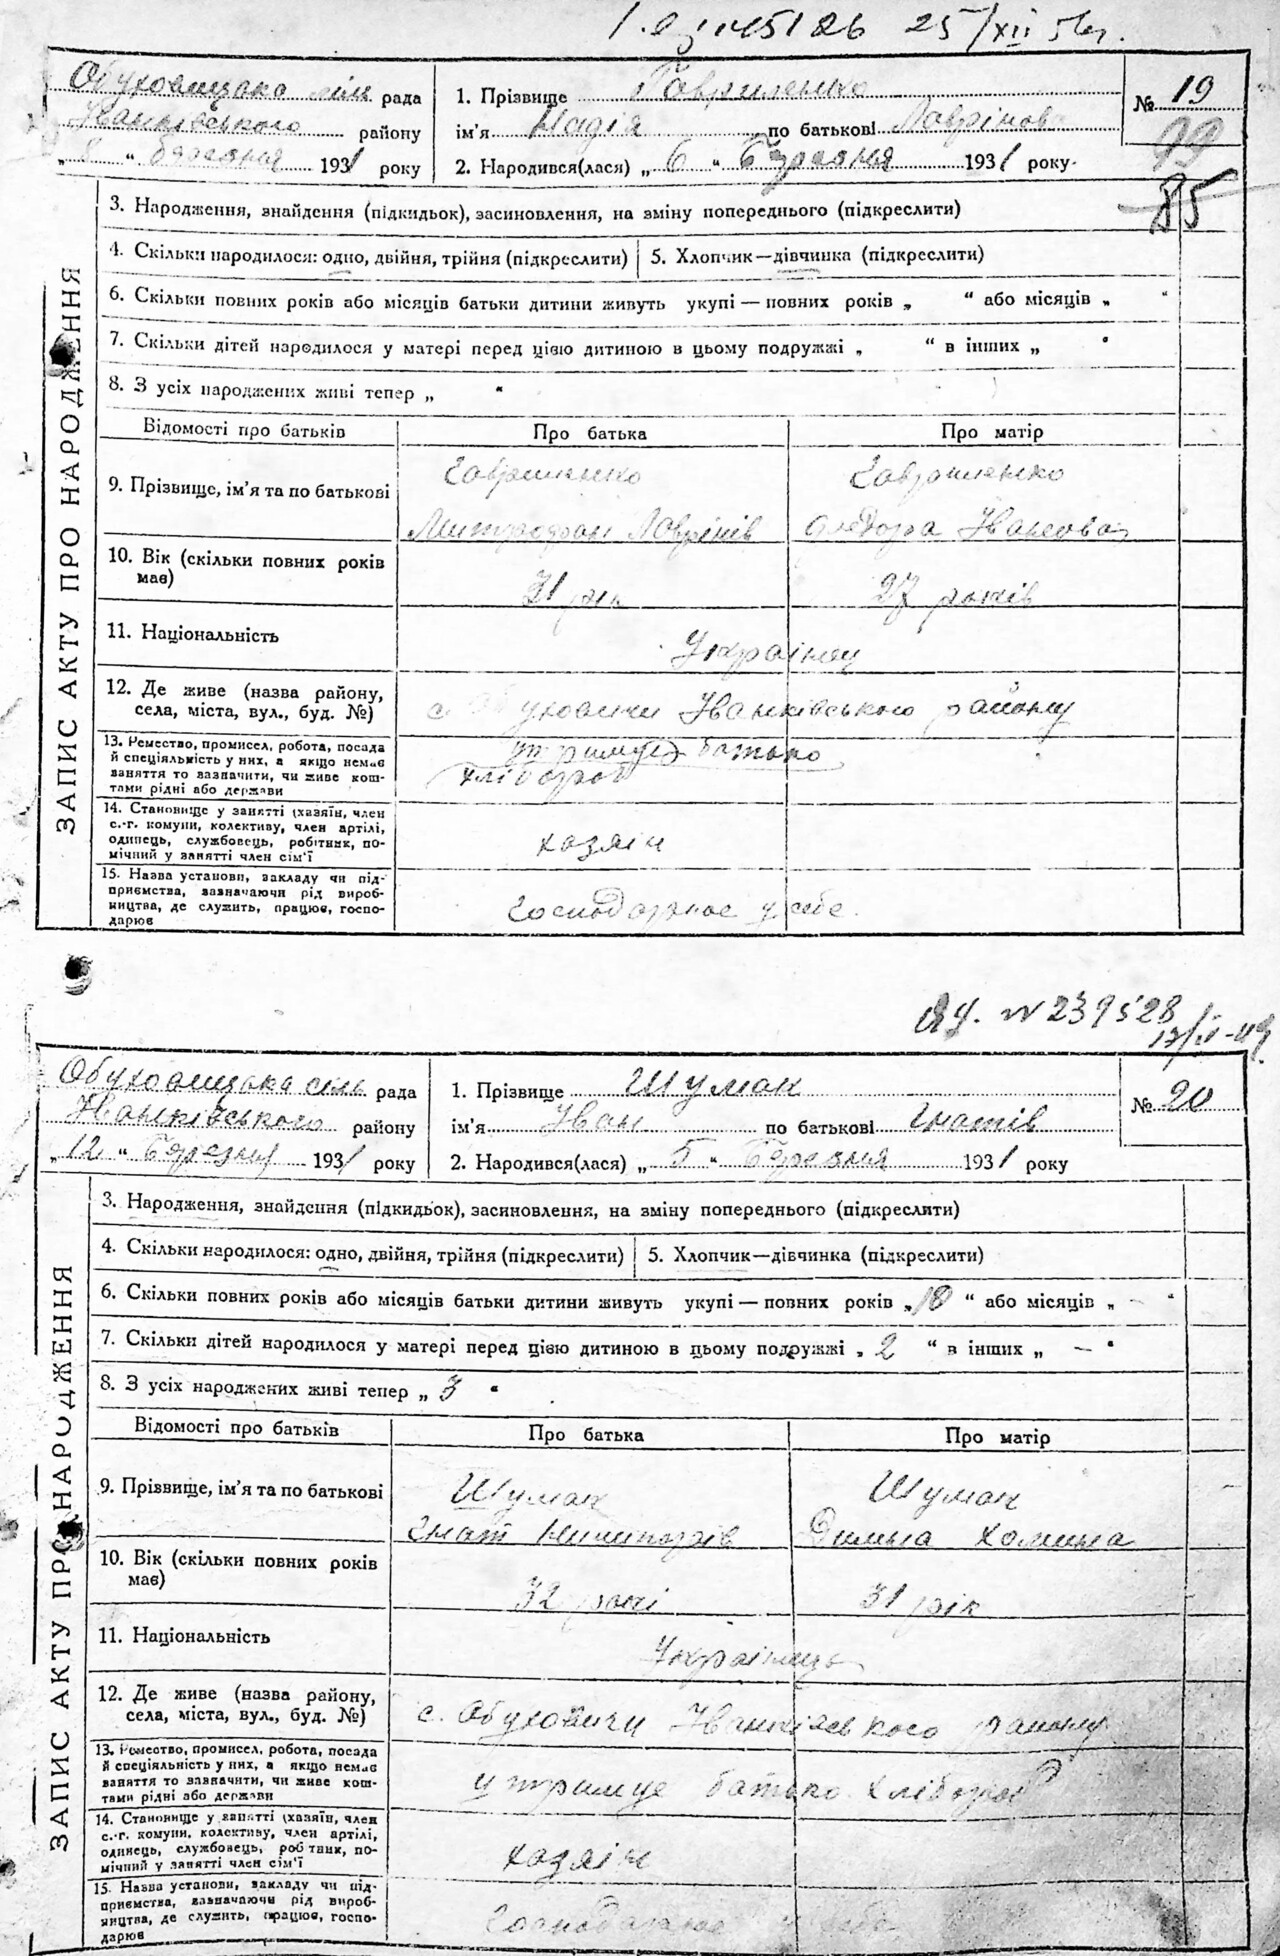 25/XII 56р.
Обуховицька сіль рада
Іванківського району
„ 8 “ березня 1931 року
1. Прізвище Гавриленко
ім’я Надія по батькові Лаврінова
2. Народився(лася) „ 6 “ Березня 1931 року
№ 19
99
85
ЗАПИС АКТУ ПРО НАРОДЖЕННЯ
3. Народження, знайдення (підкидьок), засиновлення, на зміну попереднього (підкреслити)
4. Скільки народилося: одно, двійня, трійня (підкреслити)
5. Хлопчик—дівчинка (підкреслити)
6. Скільки повних років або місяців батьки дитини живуть укупі — повних років „ “ або місяців „ “
7. Скільки дітей народилося у матері перед цією дитиною в цьому подружжі „ “ в інших „ “
8. З усіх народжених живі тепер „ “
Відомості про батьків Про батька Про матір
9. Прізвище, ім’я та по батькові
Гавриленко
Митрофан Лаврінів
Гавриленко
Іванова
10. Вік (скільки повних років
має)
31 рік
27 років
11. Національність
Українці
12. Де живе (назва району,
села, міста, вул., буд. №)
с. Обуховичи Іванківського району
13. Ремество, промисел, робота, посада
й спеціяльність у них, а якщо немає
заняття то зазначити, чи живе кош-
тами рідні або держави
утримує батько
хлібороб
14. Становище у занятті (хазяїн, член
с.-г. комуни, колективу, член артілі,
одинець, службовець, робітник, по-
мічний у занятті член сім’ї
хазяін
15. Назва установи, закладу чи під-
приємства, зазначаючи рід вироб-
ництва, де служить, працює, госпо-
дарює
Господарює у себе
ЯЧ. № 239528
Обуховицька сіль рада
Іванківського району
„ 12 “ Березня 1931 року
1. Прізвище Шумак
ім’я Іван по батькові Гнатів
2. Народився(лася) „ 5 “ Березня 1931 року
№ 20
ЗАПИС АКТУ ПРО НАРОДЖЕННЯ
3. Народження, знайдення (підкидьок), засиновлення, на зміну попереднього (підкреслити)
4. Скільки народилося: одно, двійня, трійня (підкреслити)
5. Хлопчик—дівчинка (підкреслити)
6. Скільки повних років або місяців батьки дитини живуть укупі — повних років „ 10 “ або місяців „ — “
7. Скільки дітей народилося у матері перед цією дитиною в цьому подружжі „ 2 “ в інших „ — “
8. З усіх народжених живі тепер „ 3 “
Відомості про батьків Про батька Про матір
9. Прізвище, ім’я та по батькові
Шумак
Гнат Ничипорів
Шумак
Хомина
10. Вік (скільки повних років
має)
32 рокі
31 рік
11. Національність
Українець
12. Де живе (назва району,
села, міста, вул., буд. №)
с. Обуховичи Іванківського району
13. Ремество, промисел, робота, посада
й спеціяльність у них, а якщо немає
заняття то зазначити, чи живе кош-
тами рідні або держави
утримує батько хлібороб
14. Становище у занятті (хазяїн, член
с.-г. комуни, колективу, член артілі,
одинець, службовець, робітник, по-
мічний у занятті член сім’ї
хазяін
15. Назва установи, закладу чи під-
приємства, зазначаючи рід вироб-
ництва, де служить, працює, госпо-
дарює
Господарює у себе